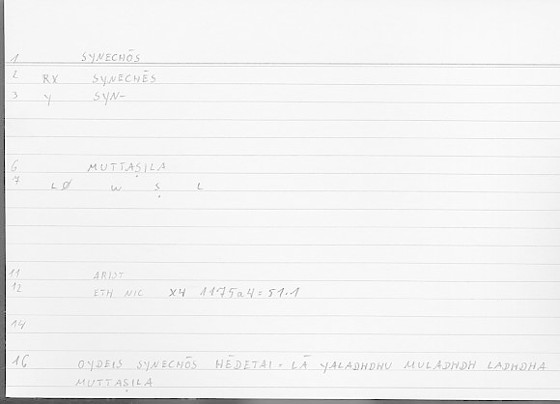 1 SYNECHŌS
2 RX SYNECHĒS
3 Y SYN-
6 MUTTAṢILA
7 LØ W Ṣ L
11 ARIST
12 ETH NIC X4 1175a4 = 51.1
14
16 OYDEIS SYNECHŌS HĒDETAI = LĀ YALADHDHU MULADHDH LADHDHA
MUTTAṢILA